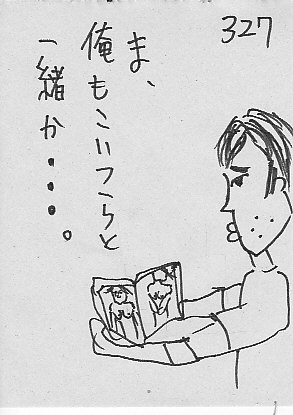 327
ま、
俺もこいつらと
一緒か・・・。